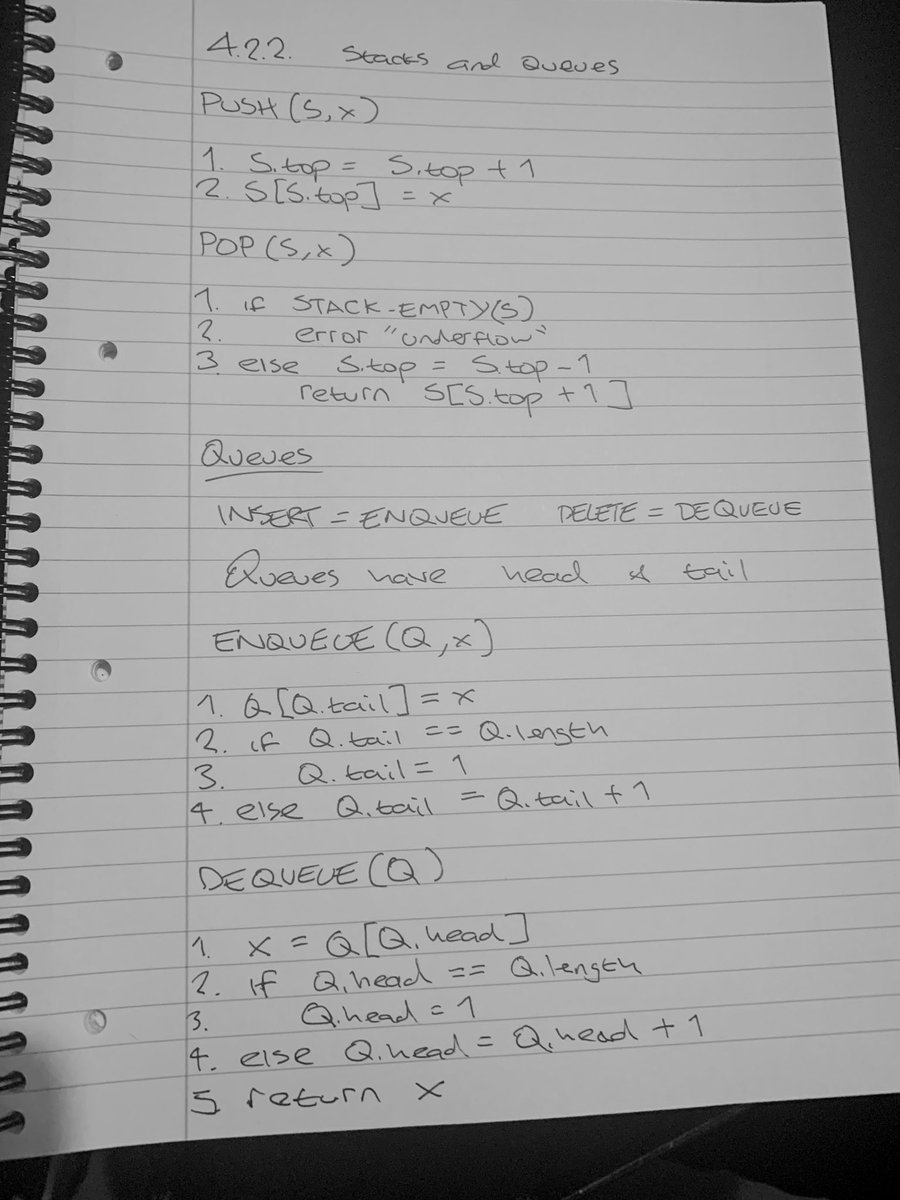 4.2.2. Stacks and Queues
PUSH (S,x)
1. S.top = S.top + 1
2. S[S.top] = x
POP (S,x)
1. if STACK-EMPTY(S)
2. error "underflow"
3. else S.top = S.top - 1
return S[S.top + 1]
Queues
INSERT = ENQUEUE DELETE = DEQUEUE
Queues have head & tail
ENQUEUE (Q,x)
1. Q[Q.tail] = x
2. if Q.tail == Q.length
3. Q.tail = 1
4. else Q.tail = Q.tail + 1
DEQUEUE (Q)
1. x = Q[Q.head]
2. if Q.head == Q.length
3. Q.head = 1
4. else Q.head = Q.head + 1
5 return x